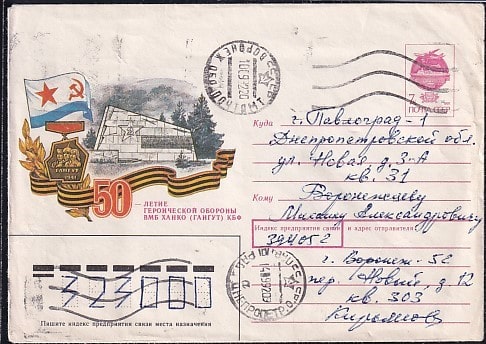 ГАНГУТ
1941
50 ЛЕТИЕ
ГЕРОИЧЕСКОЙ ОБОРОНЫ
ВМБ ХАНКО (ГАНГУТ) КБФ
7
ПОЧТА СССР
Куда г. Павлоград-1
Днепропетровской обл.
ул. Новая, д. 3-А
кв. 31
Кому
Михаилу Александровичу
Индекс предприятия связи и адрес отправителя
394052
г. Воронеж-52
пер. Новый, д. 12
кв. 303
323000
Пишите индекс предприятия связи места назначения